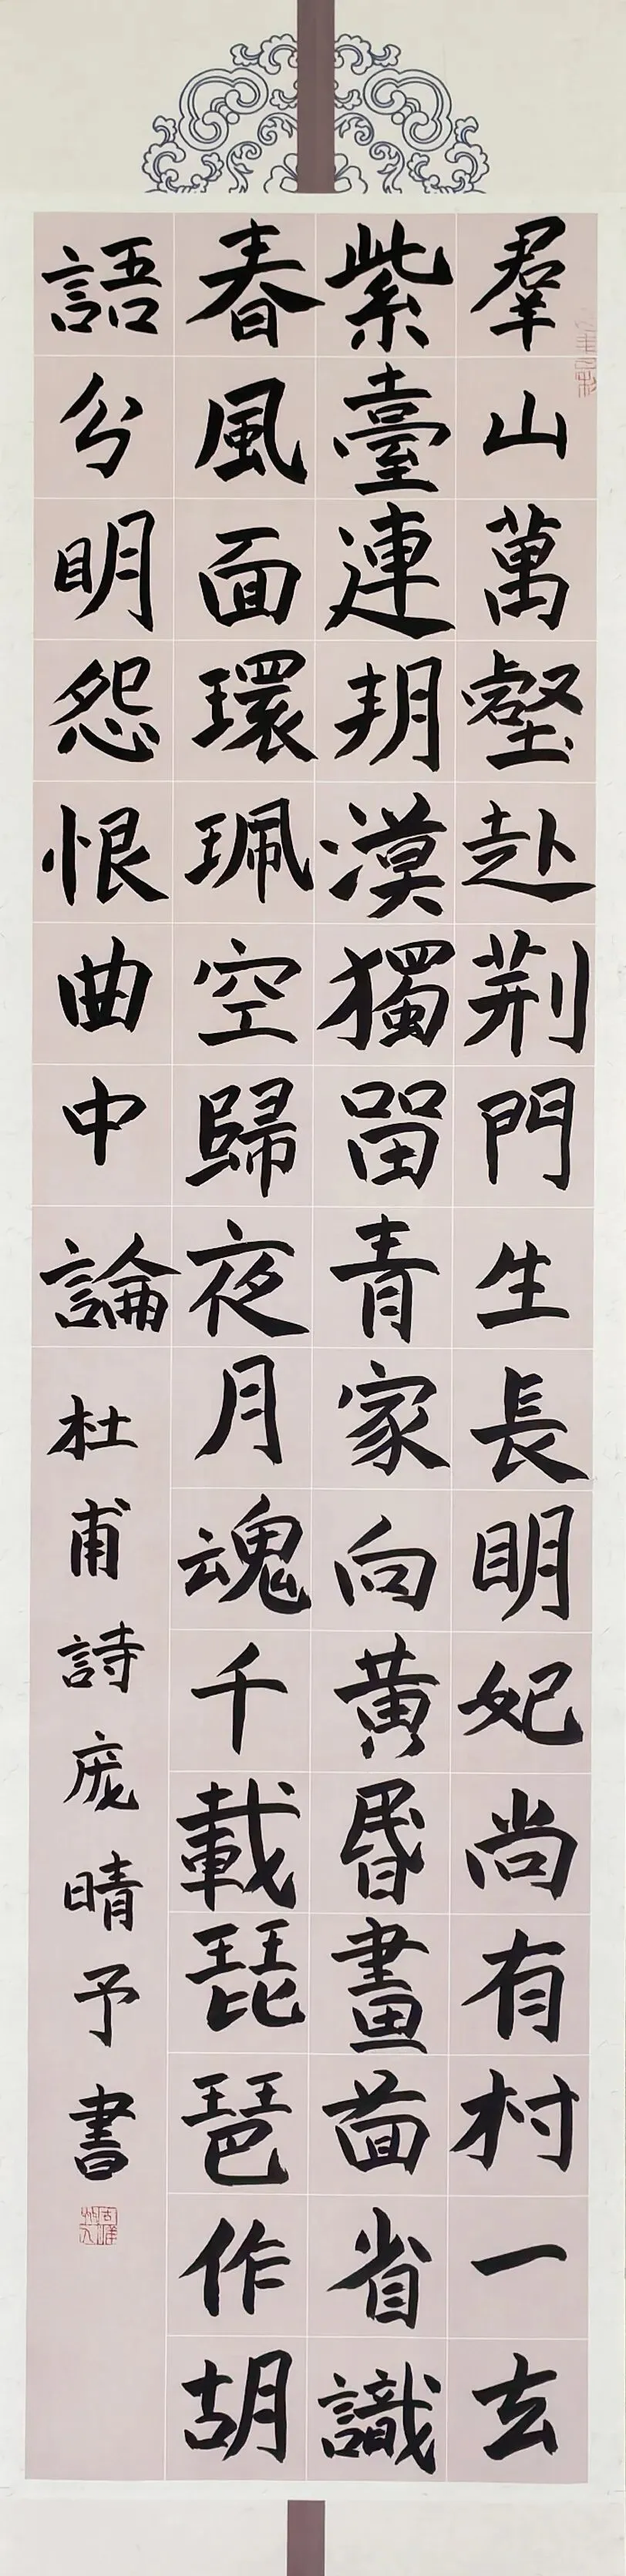 羣山萬壑赴荆門生長明妃尚有村一去
紫臺連朔漠獨留青家向黄昬畫圖省識
春風面環珮空歸夜月魂千載琵琶作胡
語分明怨恨曲中論 杜甫詩庞晴予書